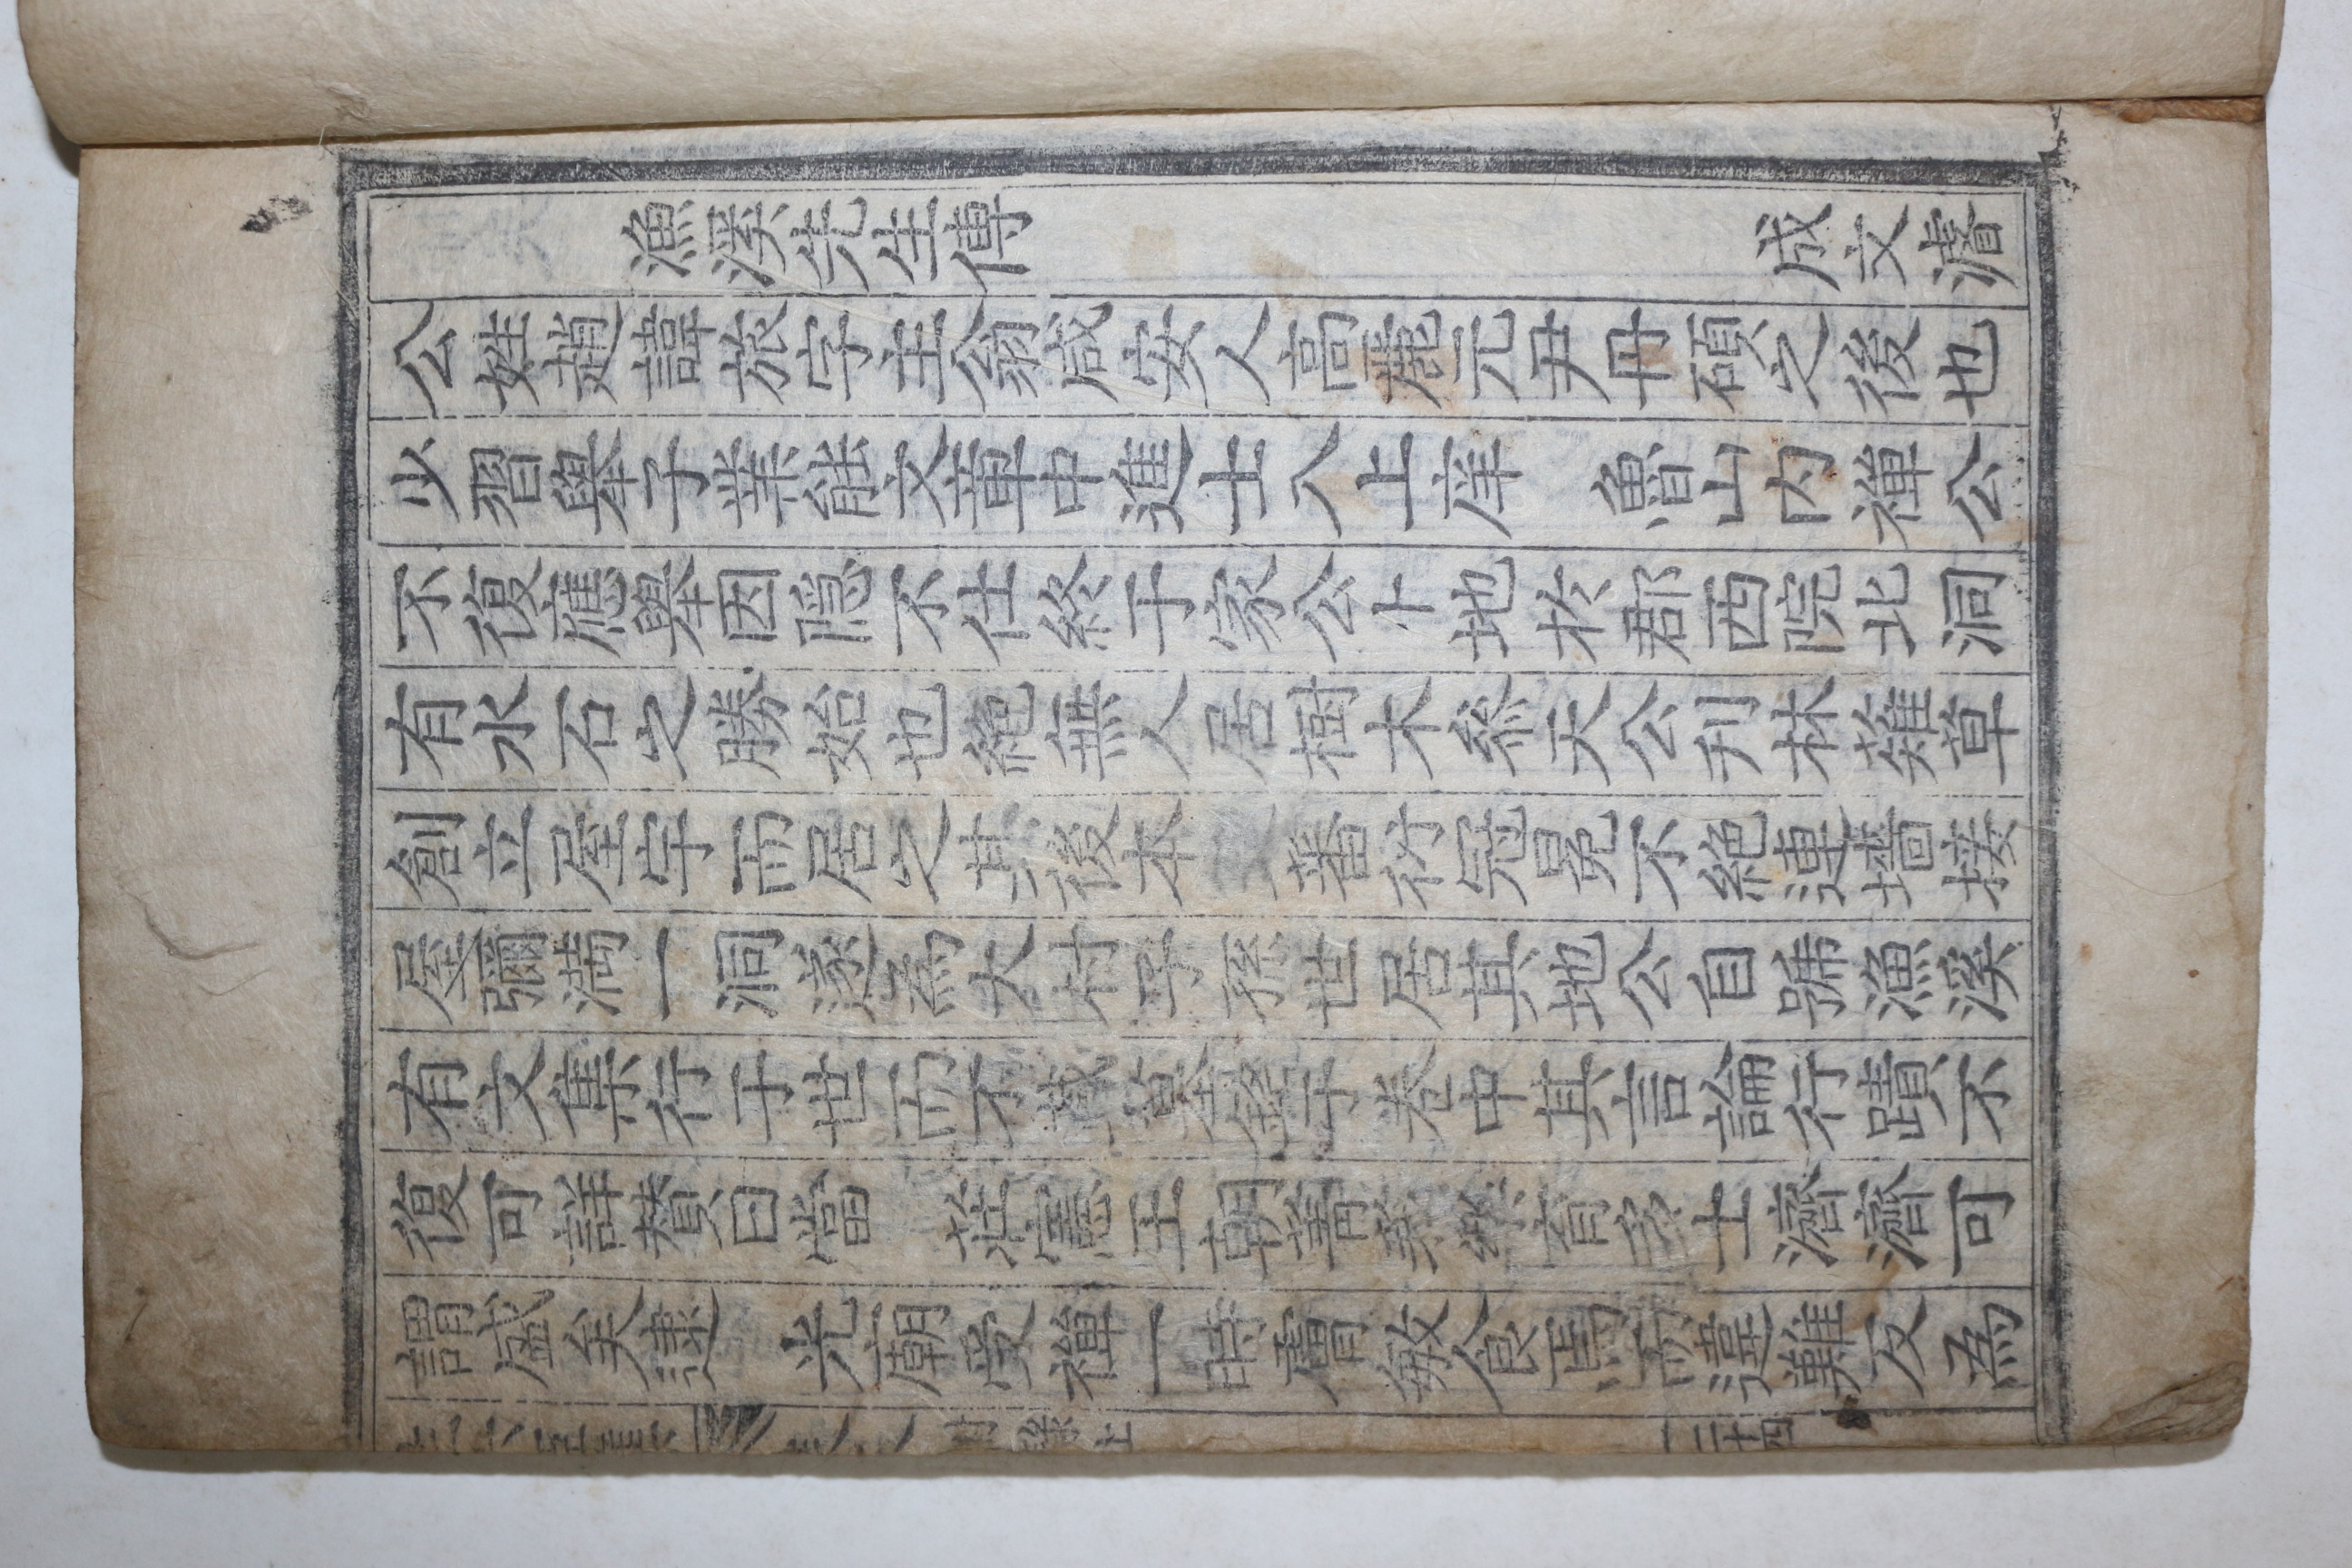 漁溪先生傳 成文濬
公姓趙諱旅字主翁咸安人高麗元尹丹碩之後也
少習擧子業能文章中進士入上庠 魯山內禪公
不復應擧因隱不仕終于家公卜地於郡西院北洞
有水石之勝始也絶無人居樹木叅天公刋林薙草
創立屋宇而居之其後本支蕃衍冠冕不絶連墻接
屋彌満一洞遂為大村子孫世居其地公自號漁溪
有文集行于世而不藏墓銘于卷中其言論行蹟不
復可詳賛曰當 莊憲王朝菁莪樂育多士濟濟可
謂盛矣逮 光廟受禪一時膚敏食焉而違難反為
附錄上
二十四